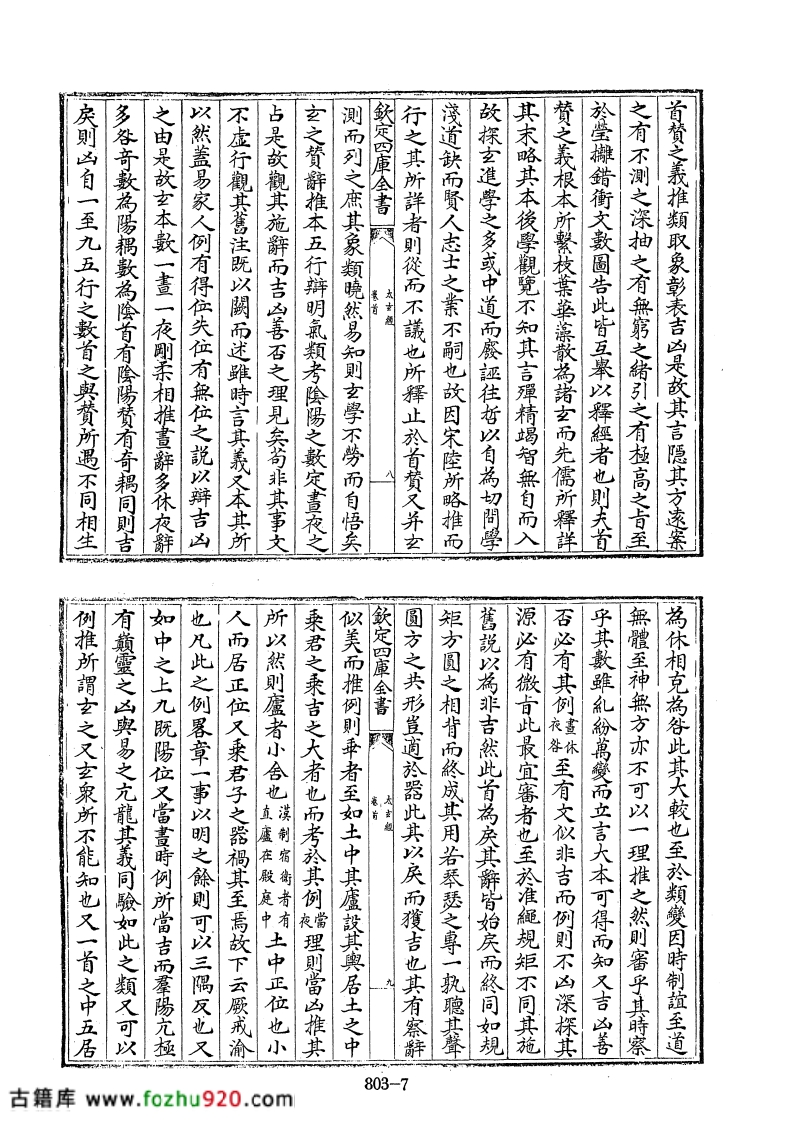 首贊之義推類取象彰表吉凶是故其言隱其方遠案
之有不測之深抽之有無窮之緒引之有極高之旨至
於瑩攡錯衝文數圖告此皆互舉以釋經者也則夫首
贊之義根本所繫枝葉華藻散為諸玄而先儒所釋詳
其末略其本後學觀覽不知其言殫精竭智無自而入
故探玄進學之多或中道而廢誣往哲以自為切問學
淺道缺而賢人志士之業不嗣也故因宋陸所略推而
行之其所詳者則從而不議也所釋止於首贊又并玄
欽定四庫全書
太玄經
卷首
八
測而列之庶其象類曉然易知則玄學不勞而自悟矣
玄之贊辭推本五行辯明氣類考陰陽之數定晝夜之
占是故觀其施辭而吉凶善否之理見矣苟非其事文
不虛行觀其舊注既以闕而述雖時言其義又本其所
以然蓋易家人例有得位失位有無位之說以辯吉凶
之由是故玄本數一晝一夜剛柔相推晝辭多休夜辭
多咎奇數為陽耦數為陰首有陰陽贊有奇耦同則吉
戾則凶自一至九五行之數首之與贊所遇不同相生
為休相克為咎此其大較也至於類變因時制誼至道
無體至神無方亦不可以一理推之然則審乎其時察
乎其數雖糺紛萬變而立言大本可得而知又吉凶善
否必有其例晝休夜咎至有文似非吉而例則不凶深探其
源必有微旨此最宜審者也至於准繩規矩不同其施
舊說以為非吉然此首為戾其辭皆始戾而終同如規
矩方圓之相背而終成其用若琴瑟之專一孰聽其聲
圓方之共形豈適於器此其以戾而獲吉也其有察辭
欽定四庫全書
太玄經
卷首
九
似美而推例則乖者至如土中其廬設其輿居土之中
乘君之乘吉之大者也而考於其例當夜理則當凶推其
所以然則廬者小舍也漢制宿衛者有直廬在殿庭中土中正位也小
人而居正位又乘君子之器禍其至焉故下云厥戒渝
也凡此之例畧章一事以明之餘則可以三隅反也又
如中之上九既陽位又當晝時例所當吉而羣陽亢極
有巔靈之凶與易之亢龍其義同驗如此之類又可以
例推所謂玄之又玄衆所不能知也又一首之中五居
803-7
古籍库 www.fozhu920.com